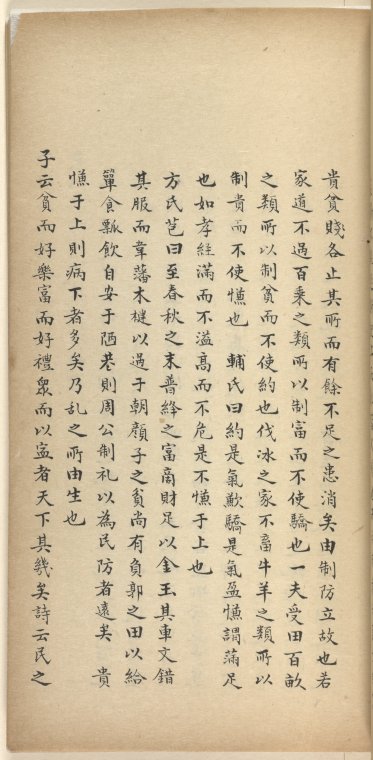 貴貧賤各止其所而有餘不足之患消矣由制防立故也若
家道不過百乘之類所以制富而不使驕也一夫受田百畝
之類所以制貧而不使約也伐冰之家不畜牛羊之類所以
制貴而不使慊也　輔氏曰約是氣歉驕是氣盈慊謂滿足
也如孝經滿而不溢高而不危是不慊于上也
方氏苞曰至春秋之末普絳之富商財足以金玉其車文錯
其服而韋藩木楗以過于朝顏子之貧尚有負郭之田以給
簞食瓢飲自安于陋巷則周公制礼以為民防者遠矣　貴
慊于上則病下者多矣乃乱之所由生也
子云貧而好樂富而好禮衆而以寍者天下其幾矣詩云民之